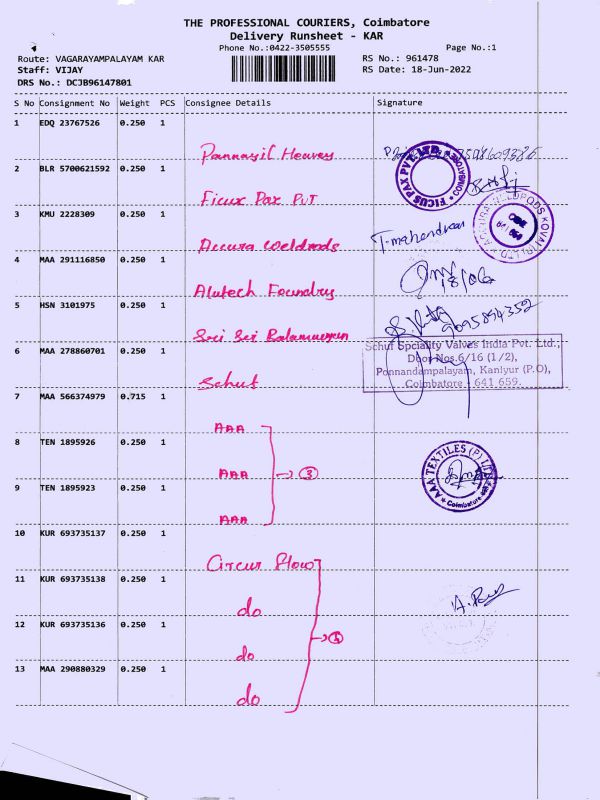 THE PROFESSIONAL COURIERS, Coimbatore
Delivery Runsheet - KAR
Phone No.:0422-3505555
Page No.:1
Route: VAGARAYAMPALAYAM KAR
RS No.: 961478
Staff: VIJAY
RS Date: 18-Jun-2022
DRS No.: DCJB96147801
S No Consignment No Weight PCS Consignee Details Signature
1 EDQ 23767526 0.250 1
2 BLR 5700621592 0.250 1
Ficux Pax PVT
FICUS PAX PVT. LTD. COIMBATORE
3 KMU 2228309 0.250 1
Accura Weldrods
T-mahendran
4 MAA 291116850 0.250 1
Alutech Foundry
18/06
5 HSN 3101975 0.250 1
Sri Sri
6 MAA 278860701 0.250 1
Schuf
Schuf Spciality Valves India Pvt. Ltd.,
Door Nos.6/16 (1/2),
Ponnandampalayam, Kaniyur (P.O),
Coimbatore - 641 659.
7 MAA 566374979 0.715 1
AAA
8 TEN 1895926 0.250 1
AAA 3
AAA TEXTILES (P) LTD
Coimbatore
9 TEN 1895923 0.250 1
AAA
10 KUR 693735137 0.250 1
Circur Flow
11 KUR 693735138 0.250 1
do
12 KUR 693735136 0.250 1
do
4
13 MAA 290880329 0.250 1
do